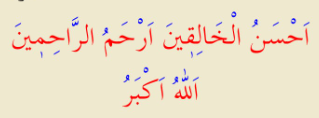 اَحْسَنُ الْخَالِقِينَ اَرْحَمُ الرَّاحِمِينَ
اَللّٰهُ اَكْبَرُ